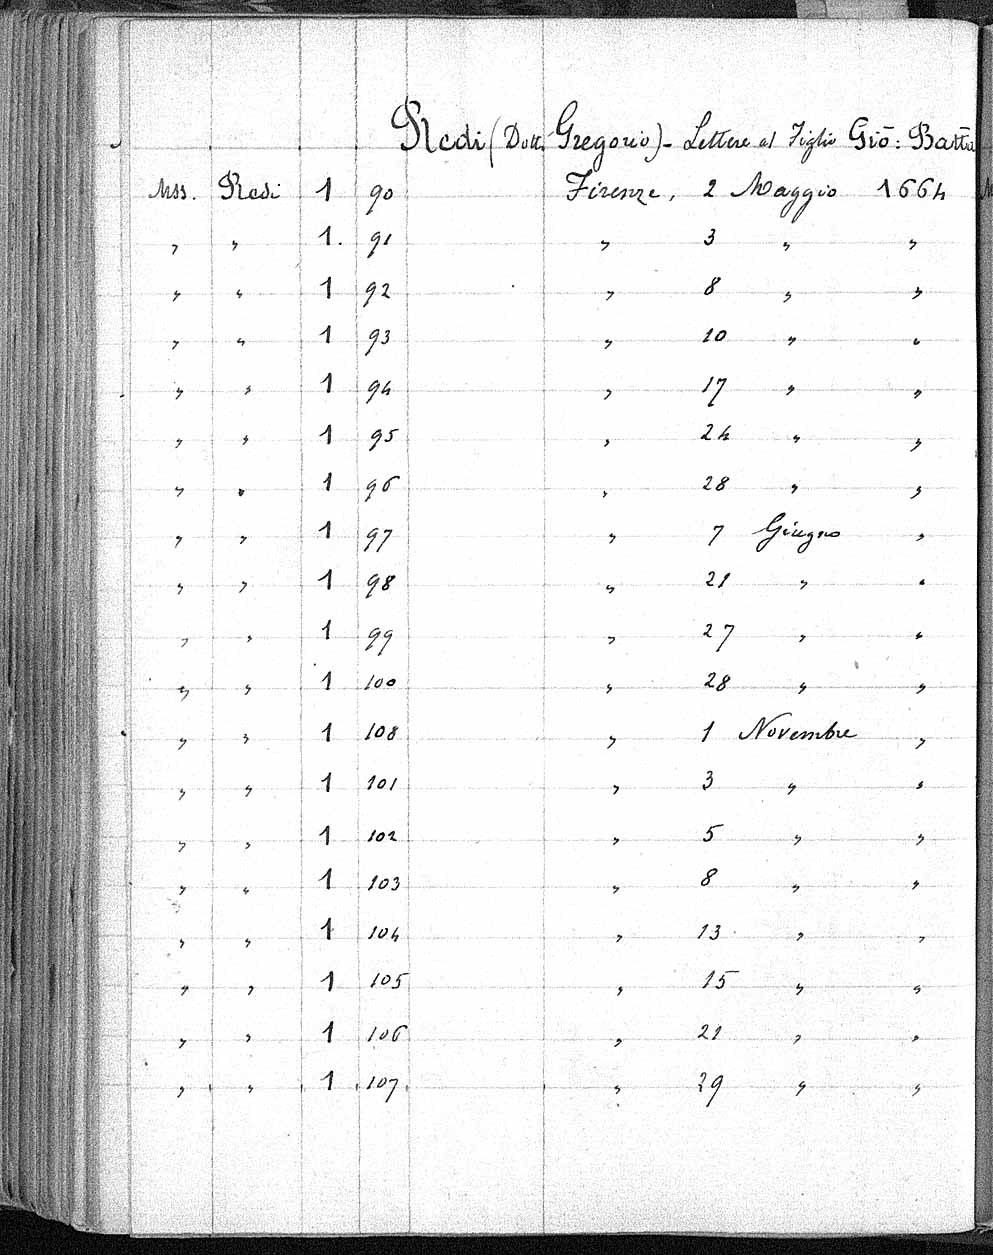 Redi (Dott. Gregorio) - Lettere al Figlio Giō: Batta
Mss. Redi 1 90 Firenze, 2 Maggio 1664
" " 1. 91 " 3 " "
" " 1 92 " 8 " "
" " 1 93 " 10 " "
" " 1 94 " 17 " "
" " 1 95 " 24 " "
" " 1 96 " 28 " "
" " 1 97 " 7 Giugno "
" " 1 98 " 21 " "
" " 1 99 " 27 " "
" " 1 100 " 28 " "
" " 1 108 " 1 Novembre "
" " 1 101 " 3 " "
" " 1 102 " 5 " "
" " 1 103 " 8 " "
" " 1 104 " 13 " "
" " 1 105 " 15 " "
" " 1 106 " 21 " "
" " 1 107 " 29 " "